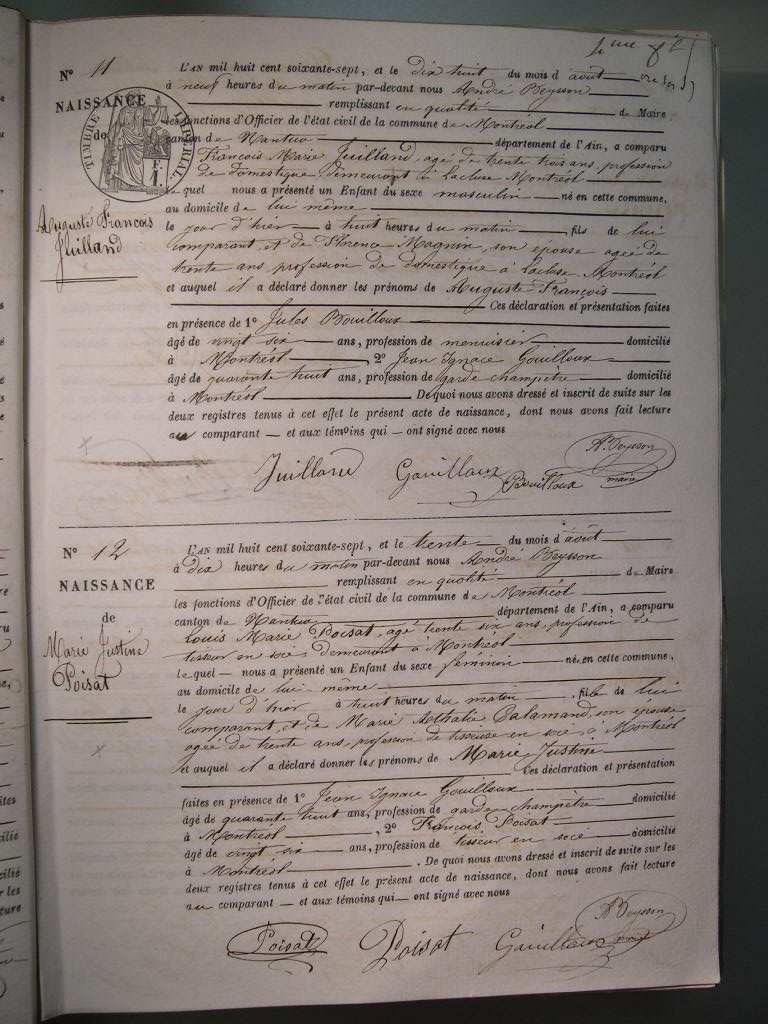 N° 11
NAISSANCE
de
TIMBRE IMPÉRIAL
1 F.
Auguste François
Juilland
L'AN mil huit cent soixante-sept, et le dix huit du mois d'août
à neuf heures du matin par-devant nous André Beysson
remplissant en qualité de Maire
les fonctions d'Officier de l'état civil de la commune de Montréal
canton de Nantua département de l'Ain, a comparu
François Marie Juilland, agé de trente trois ans, profession
de domestique demeurant à Lacluse Montréal
lequel nous a présenté un Enfant du sexe masculin né en cette commune,
au domicile de lui même
le jour d'hier à huit heures du matin fils de lui
comparant, et de Florence Magnin, son épouse agée de
trente ans, profession de domestique à Lacluse Montréal
et auquel il a déclaré donner les prénoms de Auguste François
Ces déclaration et présentation faites
en présence de 1° Jules Bouilloux
âgé de vingt six ans, profession de menuisier domicilié
à Montréal, 2° Jean Ignace Gouilloux
âgé de quarante huit ans, profession de garde champêtre domicilié
à Montréal De quoi nous avons dressé et inscrit de suite sur les
deux registres tenus à cet effet le présent acte de naissance, dont nous avons fait lecture
au comparant — et aux témoins qui — ont signé avec nous
Juilland Gouilloux Bouilloux Ae Beysson
maire
N° 12
NAISSANCE
de
Marie Justine
Poisat
L'AN mil huit cent soixante-sept, et le trente du mois d'août
à dix heures du matin par-devant nous André Beysson
remplissant en qualité de Maire
les fonctions d'Officier de l'état civil de la commune de Montréal
canton de Nantua département de l'Ain, a comparu
Louis Marie Poisat, agé trente six ans, profession de
tisseur en soie demeurant à Montréal
lequel — nous a présenté un Enfant du sexe féminin né en cette commune,
au domicile de lui-même
le jour d'hier à huit heures du matin, fille de lui
comparant, et de Marie Nathalie Balamand, son épouse
agée de trente ans, profession de tisseuse en soie, à Montréal
et auquel il a déclaré donner les prénoms de Marie Justine
Ces déclaration et présentation
faites en présence de 1° Jean Ignace Gouilloux
âgé de quarante huit ans, profession de garde champêtre domicilié
à Montréal, 2° François Poisat
âgé de vingt six ans, profession de tisseur en soie domicilié
à Montréal. De quoi nous avons dressé et inscrit de suite sur les
deux registres tenus à cet effet le présent acte de naissance, dont nous avons fait lecture
au comparant — et aux témoins qui — ont signé avec nous
Poisat Poisat Gouilloux Ae Beysson
maire